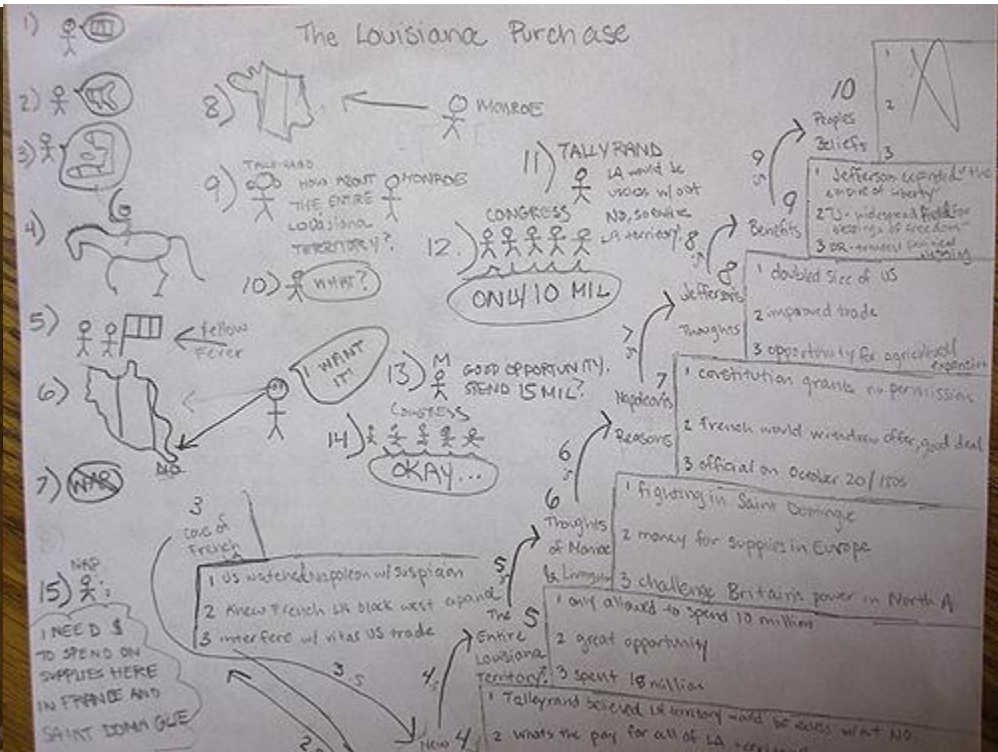 The Louisiana Purchase
1)
2)
3)
4)
5)
Yellow
Fever
6)
I WANT
IT!
NO
7) WAR
8)
MONROE
9)
HOW ABOUT
THE ENTIRE
LOUISIANA
TERRITORY?
MONROE
10) WHAT?
11) TALLYRAND
LA would be
useless w/out
NO, so entire
LA territory.
12.)
CONGRESS
ONLY 10 MIL
13) M
GOOD OPPORTUNITY.
SPEND 15 MIL?
14)
CONGRESS
OKAY...
15) NAP :
I NEED $
TO SPEND ON
SUPPLIES HERE
IN FRANCE AND
SAINT DOMAGUE
3
of
French
1 US watched Napoleon w/ suspicion
2 Knew French LA block west expand
3 interfere w/ vital US trade
3
New 4
1 Talleyrand believed LA territory would be useless w/out NO
2 whats the pay for all of LA
4
The 5
Entire
Louisiana
Territory?
1 only allowed to spend 10 million
2 great opportunity
3 spent 18 million
5
6
Thoughts
of Monroe
& Livingston
1 fighting in Saint Domingue
2 money for supplies in Europe
3 challenge Britain's power in North A
6
7
Napoleon's
Reasons
1 constitution grants no permission
2 French would withdraw offer, good deal
3 official on October 20/
7
8
Jefferson's
Thoughts
1 doubled size of US
2 improved trade
3 opportunity for agricultural expansion
8
9
Benefits
1 Jefferson expanded "the
empire of liberty"
2 TJ - widespread field for
blessings of freedom"
3
9
10
Peoples
Beliefs
1
2
3